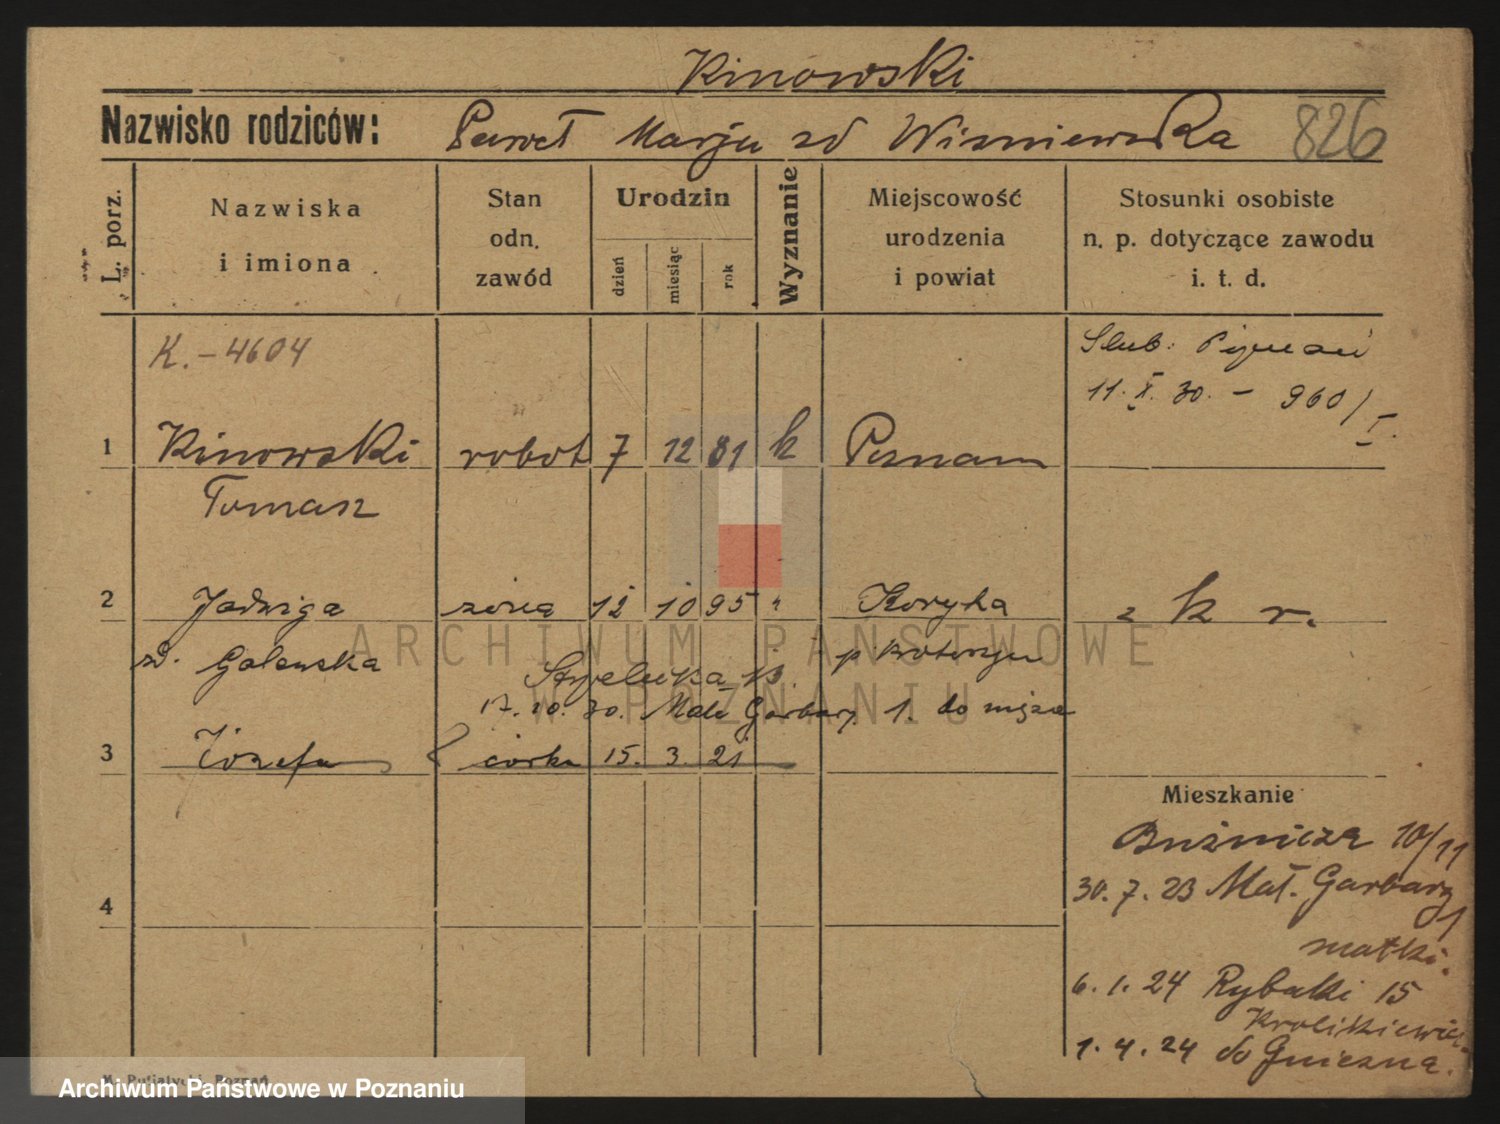 Kinowski
Nazwisko rodziców: Paweł Marja zd Wiśniewska 826
L. porz.
Nazwiska
i imiona
Stan
odn.
zawód
Urodzin
dzień
miesiąc
rok
Wyznanie
Miejscowość
urodzenia
i powiat
Stosunki osobiste
n. p. dotyczące zawodu
i. t. d.
K. - 4604
Slub: Poznań
11. X. 30. - 960/I.
1 Kinowski robot 7 12 81 k Poznań
Tomasz
2 Jadwiga żona 12 10 95 " Koryta z k r.
zd. Golewska p.
17. 10. 30. Małe Garbary 1. do męża
3 Józefa córka 15. 3. 21
Mieszkanie
Bużnicza 10/11
30. 7. 23 Mał. Garbary 1
matki.
4
6. 1. 24 Rybaki 15
Krolikiewicz
1. 4. 24 do Gniezna.
ARCHIWUM PAŃSTWOWE
W POZNANIU
Archiwum Państwowe w Poznaniu